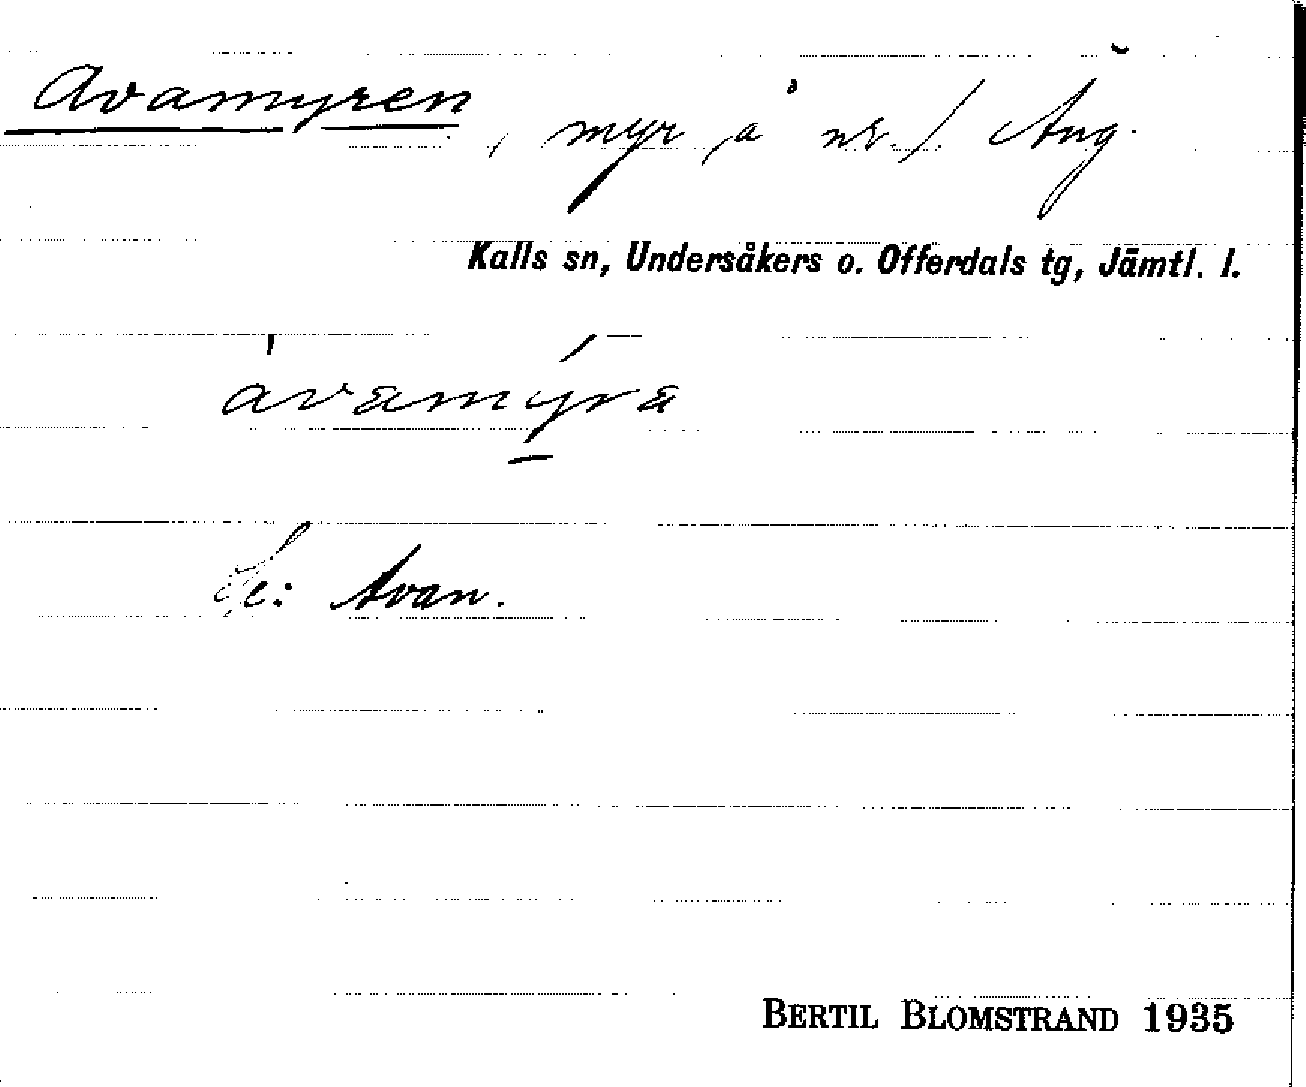 Avamyren, myr å nr 1 Äng.
Kalls sn, Undersåkers o. Offerdals tg, Jämtl. l.
avamyra
Se: Avan.
BERTIL BLOMSTRAND 1935